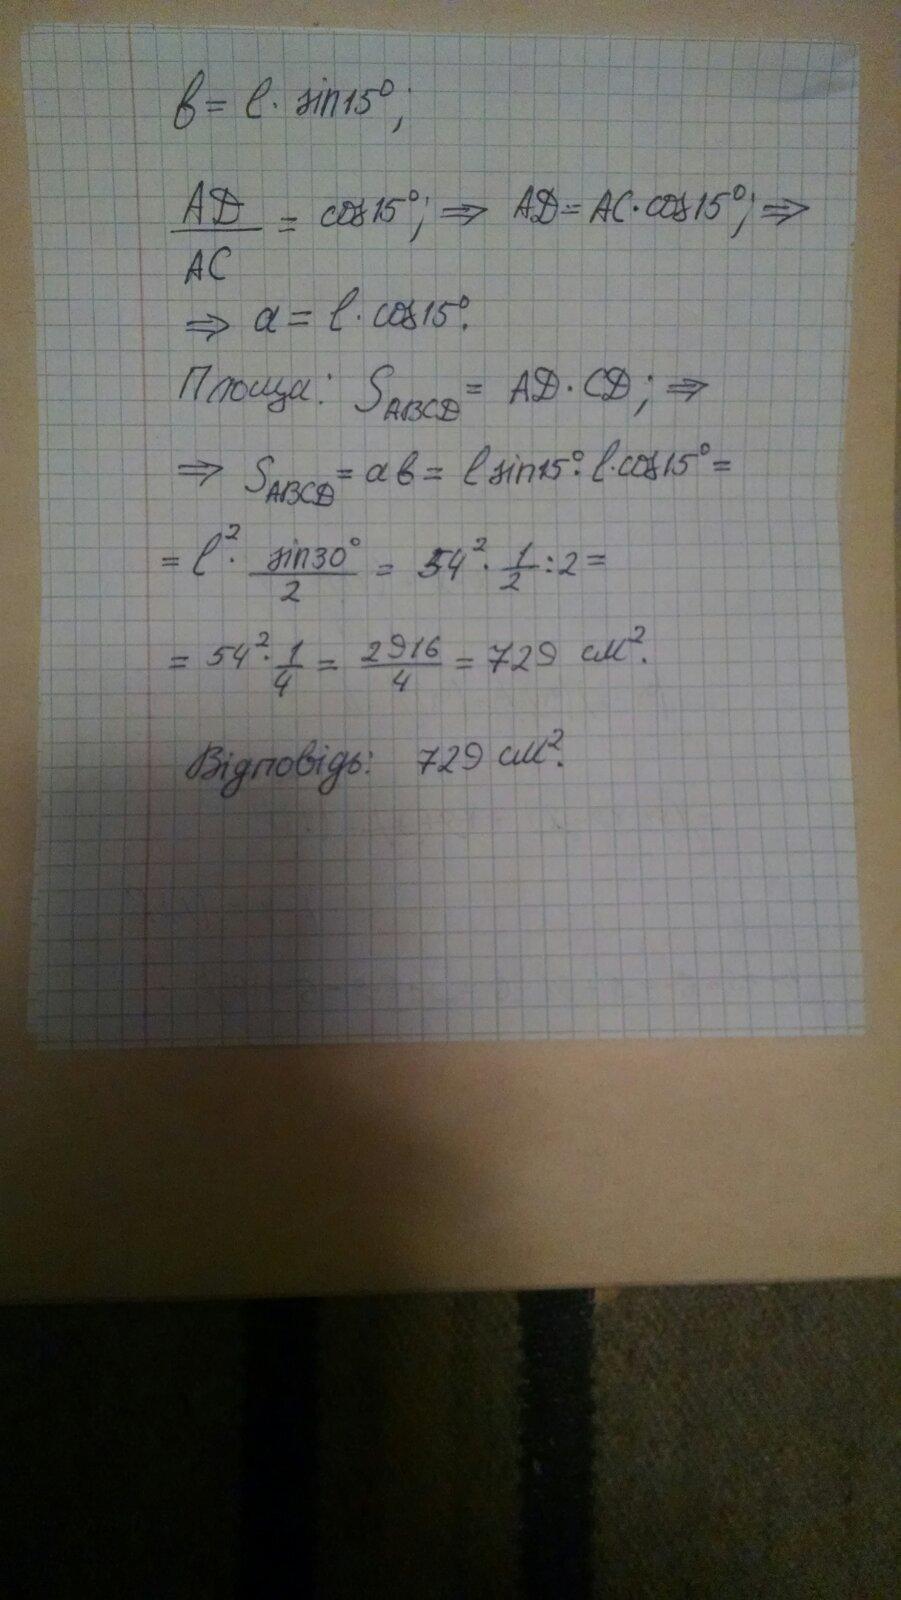 b = l · sin15°;
AD/AC = cos15°; ⇒ AD = AC · cos15°; ⇒
⇒ a = l · cos15°.
Площа: S_ABCD = AD · CD; ⇒
⇒ S_ABCD = ab = l sin15° · l · cos15° =
= l² · sin30°/2 = 54² · 1/2 : 2 =
= 54² · 1/4 = 2916/4 = 729 см².
Відповідь: 729 см².